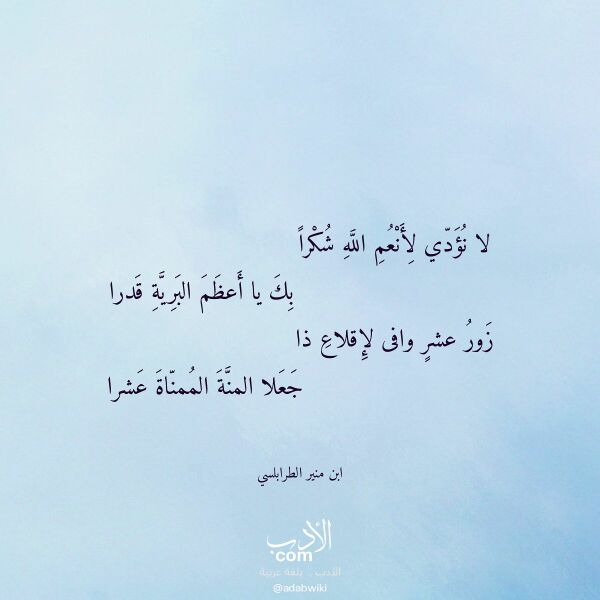 لا نُؤَدّي لِأَنْعُمِ اللَّهِ شُكْراً
بِكَ يا أَعظَمَ البَرِيَّةِ قَدرا
زَورُ عشرٍ وافى لإِقلاعِ ذا
جَعَلا المنَّةَ المُمنّاةَ عَشرا
ابن منير الطرابلسي
الأدب
com
الأدب .. بلغة عربية
@adabwiki